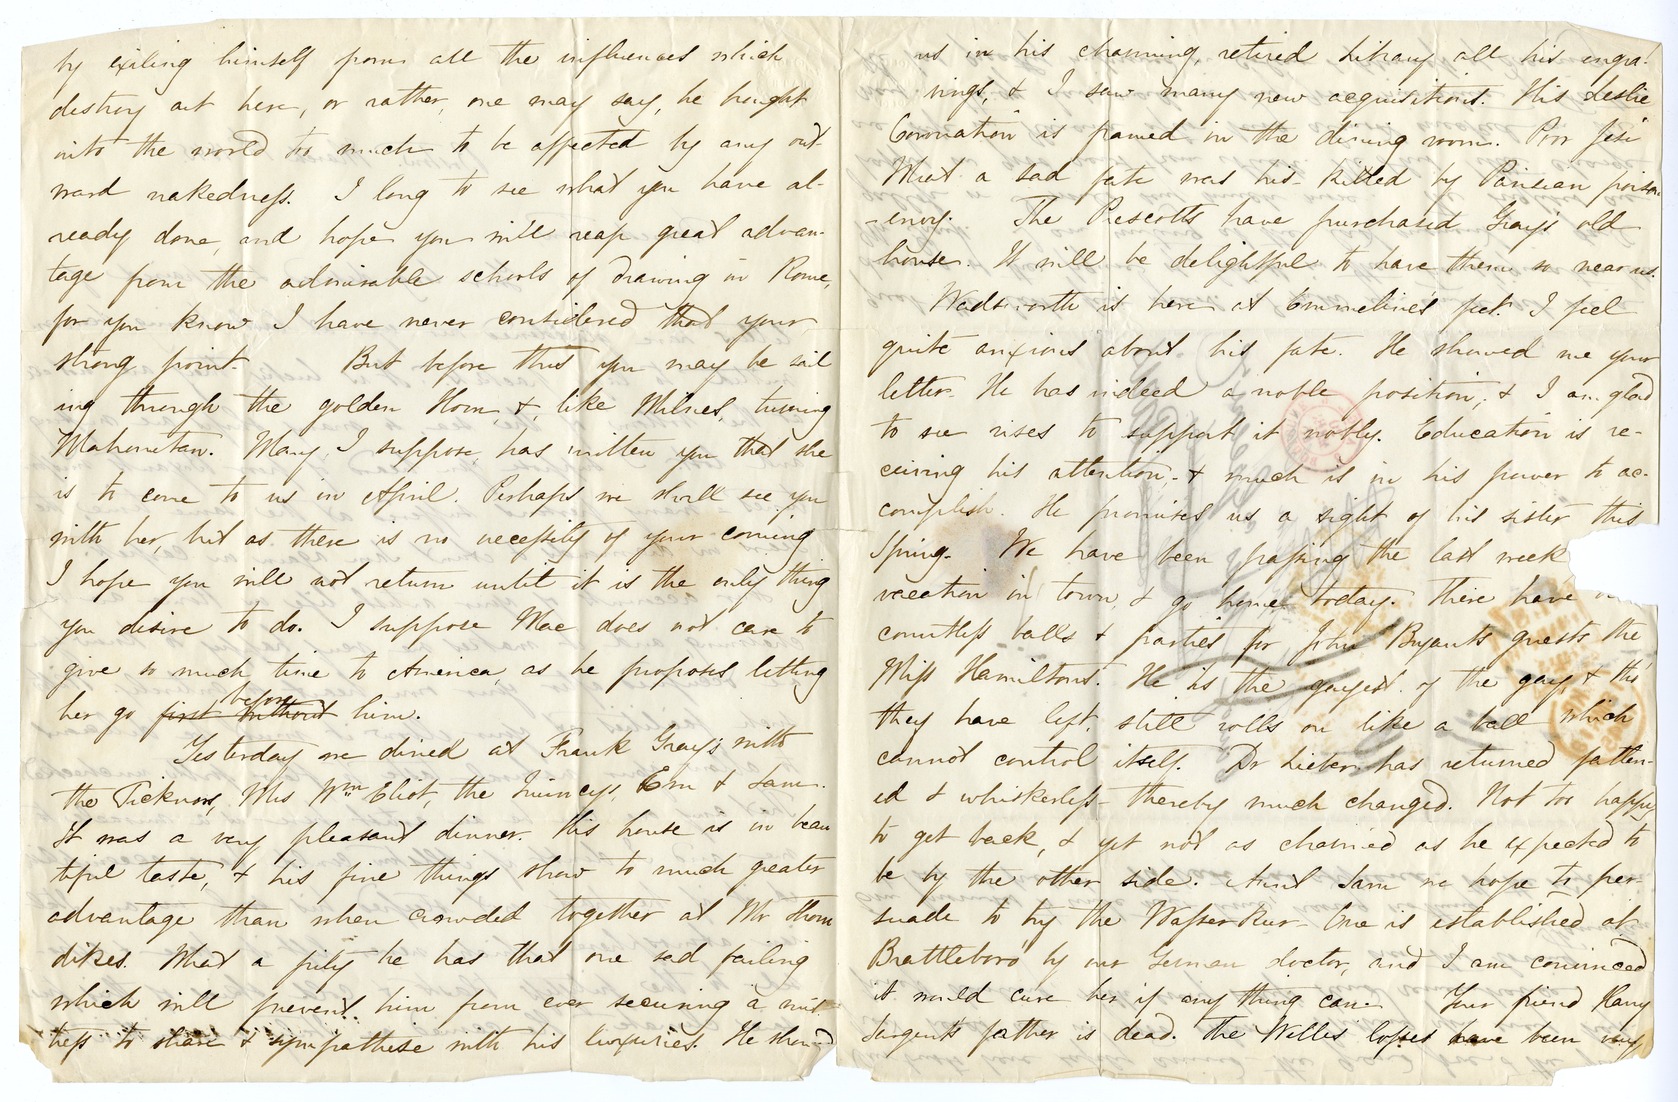 by exiling himself from all the influences which
destroy art here, or rather, one may say, he brought
into the world too much to be affected by any out
ward nakedness. I long to see what you have al-
ready done, and hope you will reap great advan-
tage from the admirable schools of drawing in Rome,
for you know I have never considered that your
strong point. But before this you may be sail
ing through the golden Horn, &, like Milnes, turning
Mahometan. Mary, I suppose, has written you that she
is to come to us in April. Perhaps we shall see you
with her, but as there is no necessity of your coming
I hope you will not return until it is the only thing
you desire to do. I suppose Mac does not care to
give so much time to America, as he proposes letting
before
her go first without him.
Yesterday we dined at Frank Gray's with
the Ticknors, Mrs Wm Eliot, the Quincys, Em & Sam.
It was a very pleasant dinner. His house is in beau
tiful taste, & his fine things show to much greater
advantage than when crowded together at Mr Thorn
dikes. What a pity he has that one sad failing
which will prevent him from ever securing a mis
tress to share & sympathise with his luxuries. He showed
us in his charming, retired Library all his engra-
vings, & I saw many new acquisitions. His Leslie
Coronation is framed in the dining room. Poor
What a sad fate was his - killed by Parisian poison
-envy. The Prescotts have purchased Gray's old
house. It will be delightful to have them so near us.
Wadsworth is here at Emmeline's feet. I feel
quite anxious about his fate. He showed me your
letter. He has indeed a noble position, & I am glad
to see rises to support it nobly. Education is re-
ceiving his attention - & much is in his power to ac-
complish. He promises us a sight of his sister this
Spring. We have been passing the last week
vacation in town, & go home today. There have
countless balls & parties for John Bryant's guests the
Miss Hamiltons. He is the gayest of the gay, & tho'
they have left, still rolls on like a ball which
cannot control itself. Dr Lieber has returned fatten-
ed & whiskerless - thereby much changed. Not too happy
to get back, & yet not as charmed as he expected to
be by the other side. Aunt Sam we hope to per
suade to try the Wasser Kur. One is established at
Brattleboro' by our German doctor, and I am convinced
it would cure her if any thing can. Your friend Harry
Sargent's father is dead. The Willis losses have been very